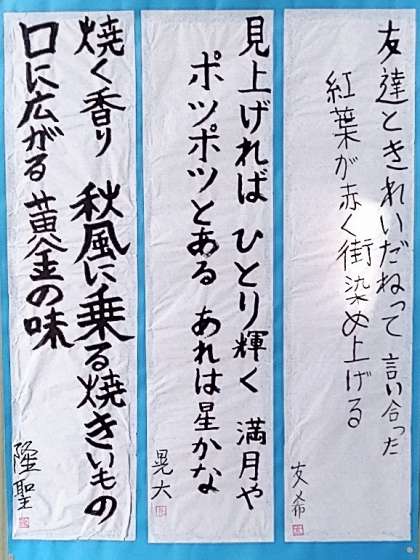 友達ときれいだねって 言い合った
紅葉が赤く街染め上げる
友希
見上げれば ひとり輝く 満月や
ポツポツとある あれは星かな
晃大
焼く香り 秋風に乗る焼きいもの
口に広がる 黄金の味
隆聖